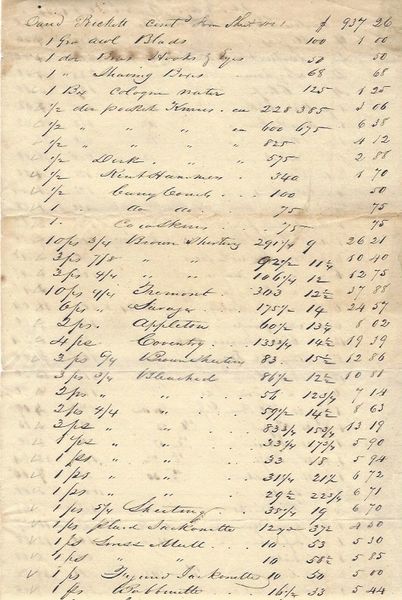 David Rickett Cont'd from Sheet No 1 $ 937 26
1 Gro awl Blads 100 1 00
1 doz Hooks & Eyes 50 50
1 " Shaving Boxes 68 68
1 Box Cologne water 125 1 25
1/2 doz pocket Knives 228 385 3 06
1/2 " " " 600 675 6 38
1/2 " " " 825 4 12
1/2 " Dirk " 575 2 88
1/2 " Hammers 340 1 70
1/2 " Curry Combs 100 50
1 " do do 75 75
1 " 75 75
10 ps 3/4 Brown Shirting 291 1/2 9 26 21
3 ps 7/8 " " 92 1/2 11 1/4 10 40
3 ps 4/4 " " 106 1/4 12 12 75
10 ps 4/4 Tremont 303 12 1/2 37 88
6 ps " 175 1/2 14 24 57
2 ps. Appleton 60 1/2 13 1/4 8 02
4 ps Coventry 133 3/4 14 1/2 19 39
2 ps 5/4 Brown Sheeting 83 15 1/2 12 86
3 ps 3/4 Bleached 86 1/2 12 1/2 10 81
2 ps " 56 12 3/4 7 14
2 ps 4/4 " 59 1/2 14 1/2 8 63
3 ps " 83 3/4 15 3/4 13 19
1 ps " 33 1/4 17 3/4 5 90
1 ps " 33 18 5 94
1 ps " " 31 1/4 21 1/2 6 72
1 ps " " 29 1/2 22 3/4 6 71
1 ps 5/4 Shirting 35 1/4 19 6 70
1 ps plaid Jackonette 12 yds 37 1/2 4 60
1 ps Swiss Mull 10 53 5 30
1 ps " " 10 58 1/2 5 85
1 ps Figured Jackonette 10 50 5 00
1 ps Bobbinette 16 1/2 33 5 44